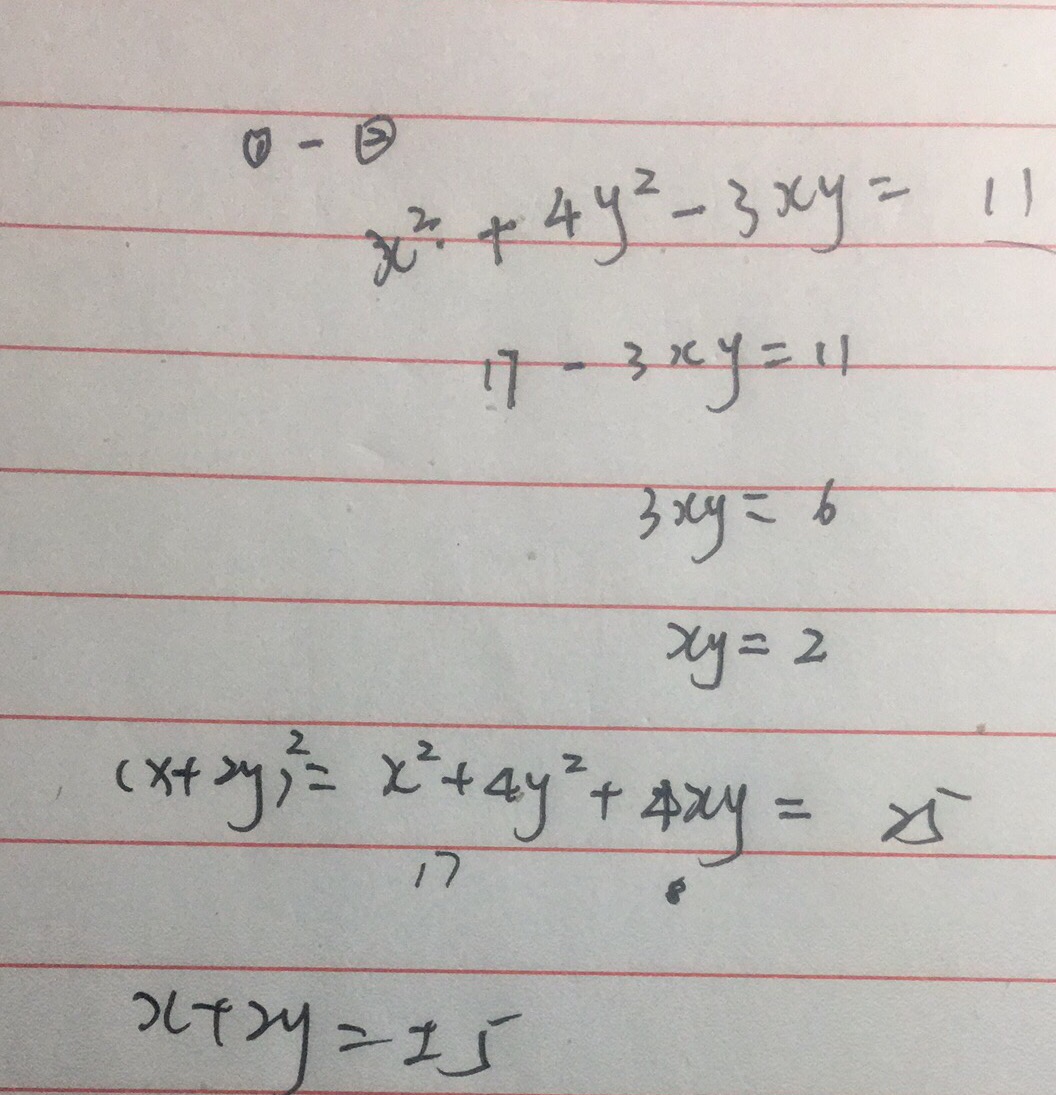 ① - ②
x² + 4y² - 3xy = 11
17 - 3xy = 11
3xy = 6
xy = 2
(x+2y)² = x² + 4y² + 4xy = 25
17 8
x+2y = ±5